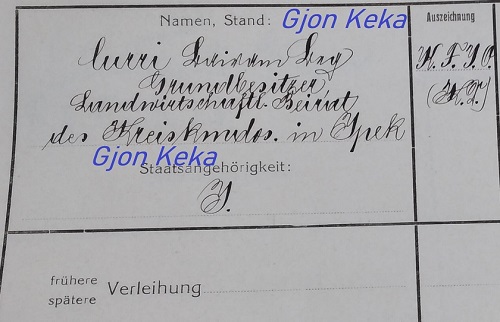 Namen, Stand: Gjon Keka
Auszeichnung
Curri Bairam Beg
K. F. J. O.
Grundbesitzer,
(K. D.)
Landwirtschaftl. Beirat
des Kreiskmdos. in Ipek
Gjon Keka
Staatsangehörigkeit:
frühere
spätere Verleihung